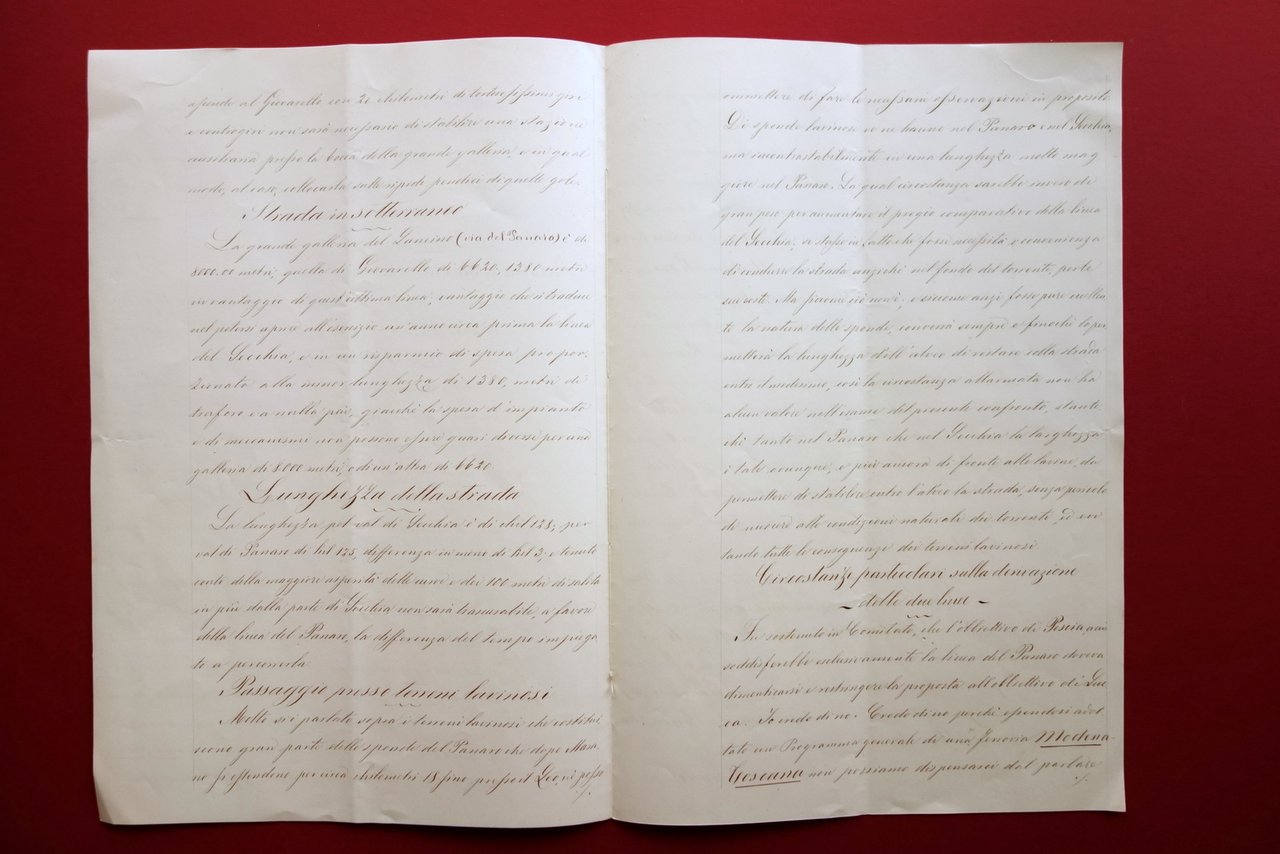 spende al Giovarello con 20 chilometri di tortuosissimi giri
e controgiri non sarà necessario di stabilire una stazione
ausiliaria presso la bocca della grande galleria, e in qual
modo, al caso, collocarla sulle ripide pendici di quelle gole.
Strada in sotterraneo
La grande galleria del (via del Panaro) è di
8000.00 metri, quella di Giovarello di 6620, 1380 metri
in vantaggio di quest'ultima linea, vantaggio che si traduce
nel potersi aprire all'esercizio un'anno circa prima la linea
del Secchia, e in un risparmio di spesa propor-
zionata alla minor lunghezza di 1380, metri di
traforo e a nulla più, giacchè la spesa d'impianto
e di meccanismi non possono essere guari diversi per una
galleria di 8000 metri, e di un'altra di 6620.
Lunghezza della strada
La lunghezza pel val di Secchia è di chil 128; per
val di Panaro di kil 125, differenza in meno di kil 3, e tenuto
conto della maggiore asprità delle curve e dei 100 metri di salita
in più dalla parte di Secchia non sarà trascurabile, a favore
della linea del Panaro, la differenza del tempo impiega
to a percorrerla.
Passaggio presso terreni lavinosi
Molto si è parlato sopra i terreni lavinosi che costitui
scono gran parte delle sponde del Panaro che dopo Mara
no si estendono per circa chilometri 18 fino presso il Leo, vi posso
ommettere di fare le necessarie osservazioni in proposito.
Di sponde lavinose ve ne hanno nel Panaro e nel Secchia,
ma incontrastabilmente in una lunghezza molto mag
giore nel Panaro. La qual circostanza sarebbe invero di
gran peso per aumentare il pregio comparativo della linea
del Secchia, se stasse in fatto che fosse necessità o convenienza
di condurre la strada anzichè nel fondo del torrente, per le
sue coste. Ma siccome ciò non è, e siccome anzi fosse pure
te la natura delle sponde, converrà sempre e finchè lo per
metterà la lunghezza dell'alveo di restare colla strada
entro il medesimo, così la circostanza allarmata non ha
alcun valore nell'esame del presente confronto, stante
chè tanto nel Panaro che nel Secchia la larghezza
è tale ovunque, e più ancora di fronte alle lavine, da
permettere di stabilire entro l'alveo la strada, senza pericolo
di nuocere alle condizioni naturali dei torrenti, ed evi
tando tutte le conseguenze dei terreni lavinosi.
Circostanze particolari sulla derivazione
~ delle due linee ~
Fu sostenuto in Comitato, che l'obbiettivo di Pescia, a cui
soddisferebbe esclusivamente la linea del Panaro doveva
dimenticarsi e restringere la proposta all'obbiettivo di Luc
ca. Io credo di no. Credo di no perchè essendosi adot
tato un Programma generale di una ferrovia Modena-
Toscana non possiamo dispensarci dal parlare